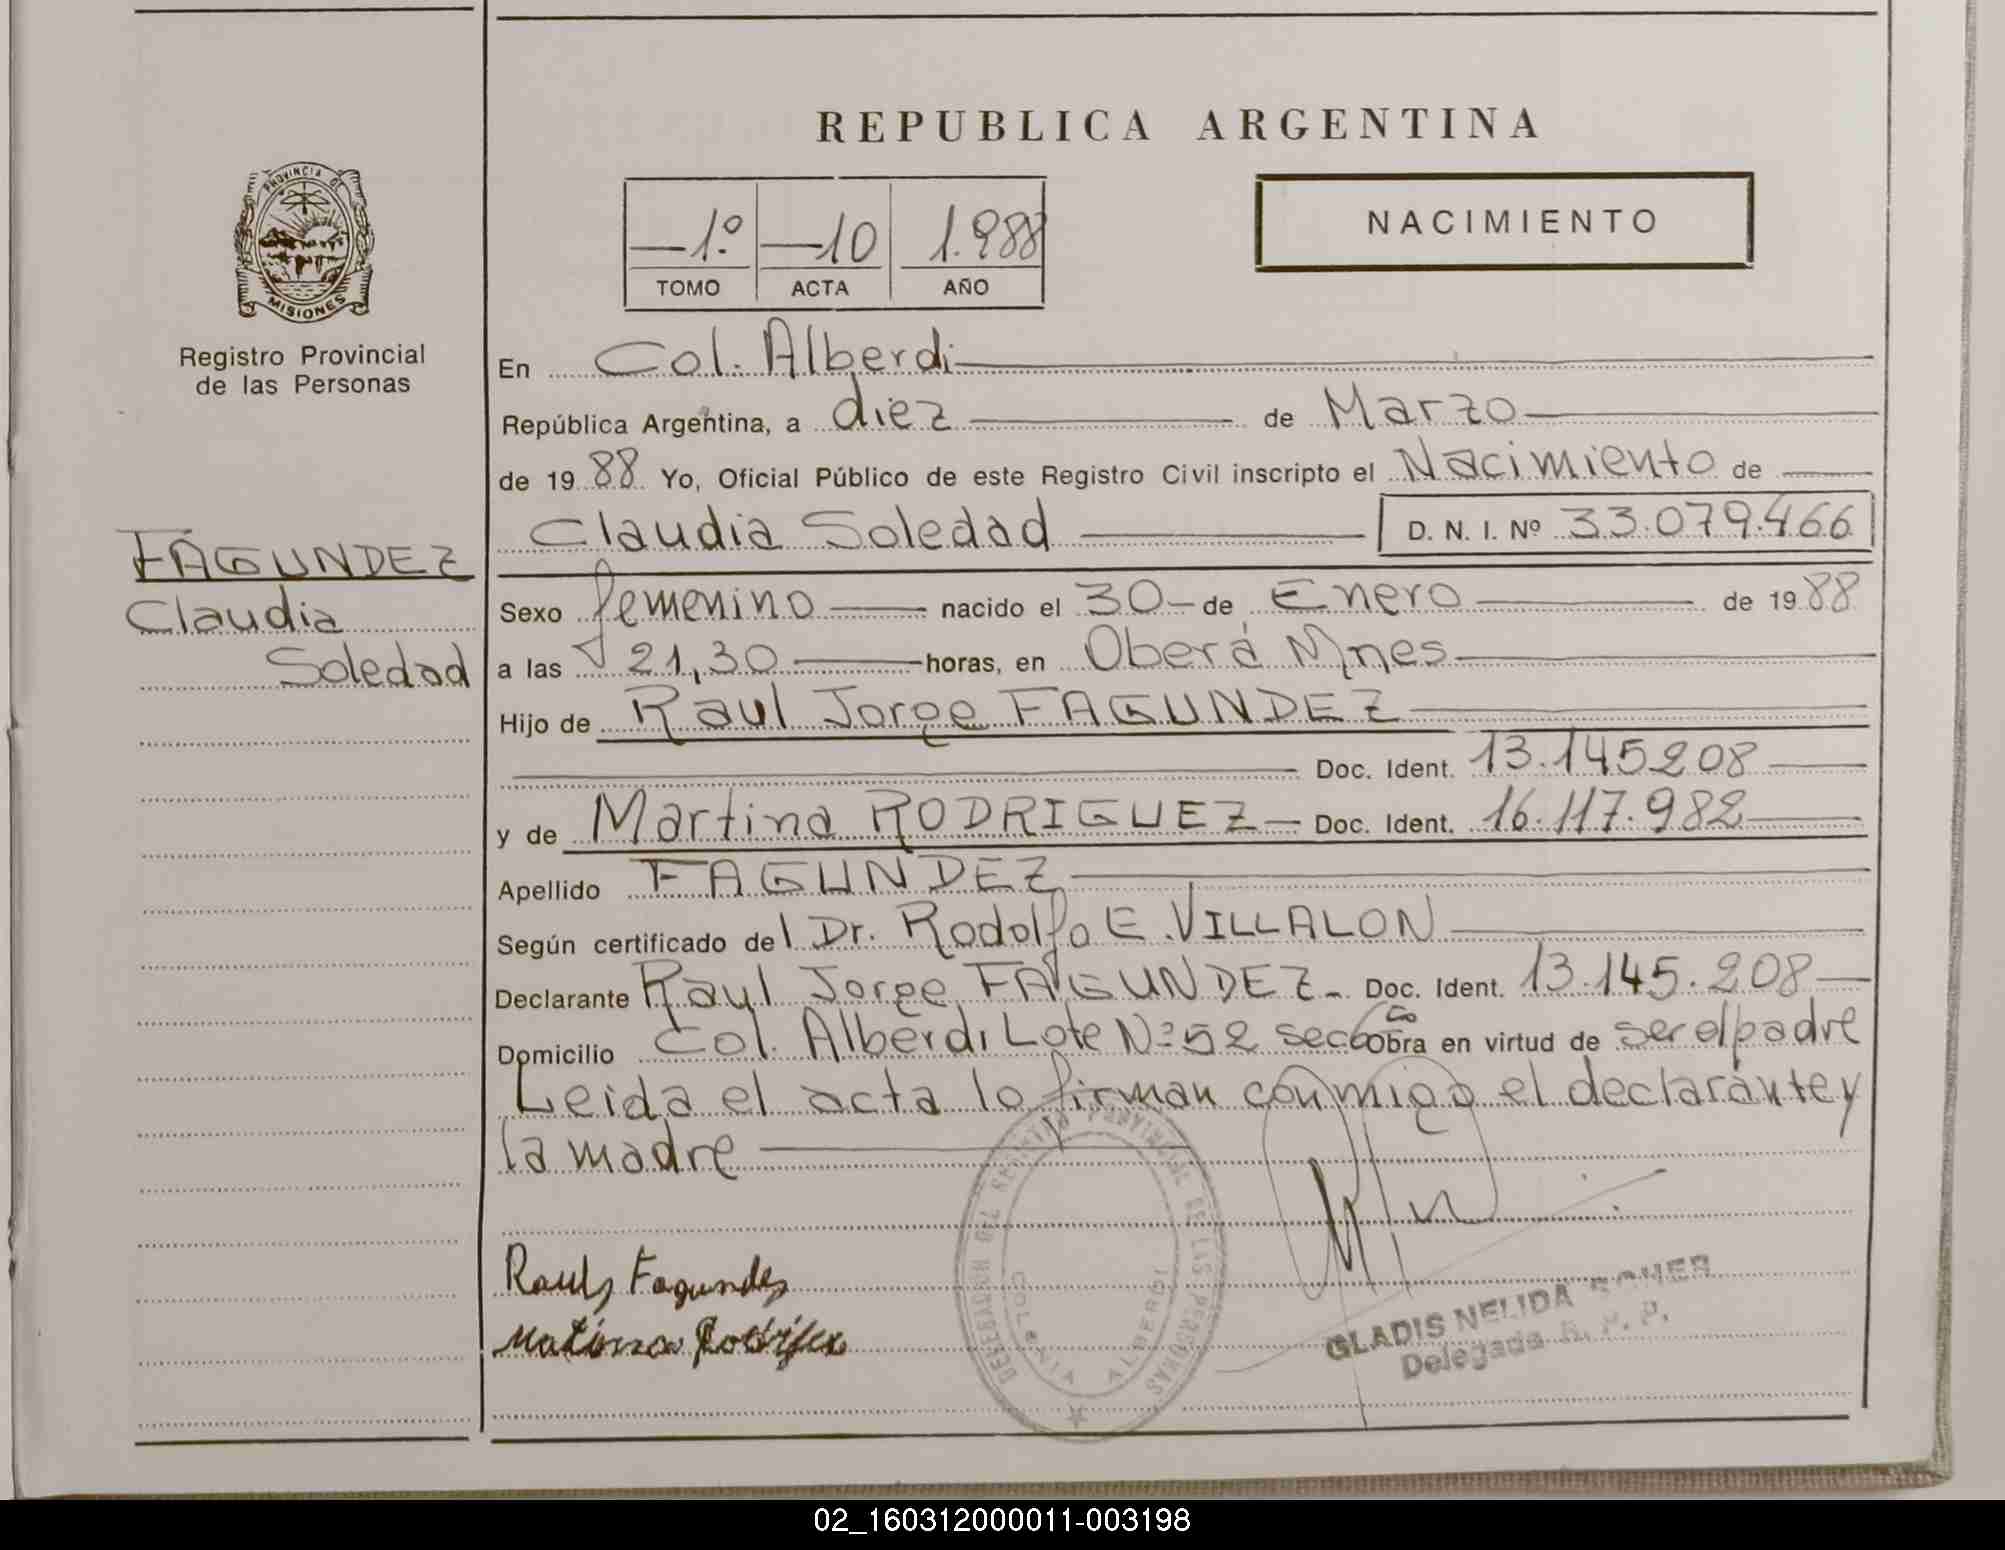 REPUBLICA ARGENTINA
PROVINCIA DE
MISIONES
Registro Provincial
de las Personas
1º 10 1.988
TOMO ACTA AÑO
NACIMIENTO
En Col. Alberdi
República Argentina, a diez de Marzo
de 19 88 Yo, Oficial Público de este Registro Civil inscripto el Nacimiento de
Claudia Soledad D. N. I. Nº 33.079.466
FAGUNDEZ
Claudia
Soledad
Sexo femenino nacido el 30 de Enero de 19 88
a las 21,30 horas, en Oberá Mnes
Hijo de Raul Jorge FAGUNDEZ
Doc. Ident. 13.145208
y de Martina RODRIGUEZ Doc. Ident. 16.117.982
Apellido FAGUNDEZ
Según certificado del Dr. Rodolfo E. VILLALON
Declarante Raul Jorge FAGUNDEZ Doc. Ident. 13.145.208
Domicilio Col. Alberdi Lote Nº 52 secc Obra en virtud de ser el padre
Leida el acta lo firman conmigo el declarante y
la madre
DELEGACION DEL REGISTRO PROVINCIAL DE LAS PERSONAS
COLONIA ALBERDI
Raul J Fagundez
GLADIS NELIDA
Delegada R. P. P.
02_160312000011-003198